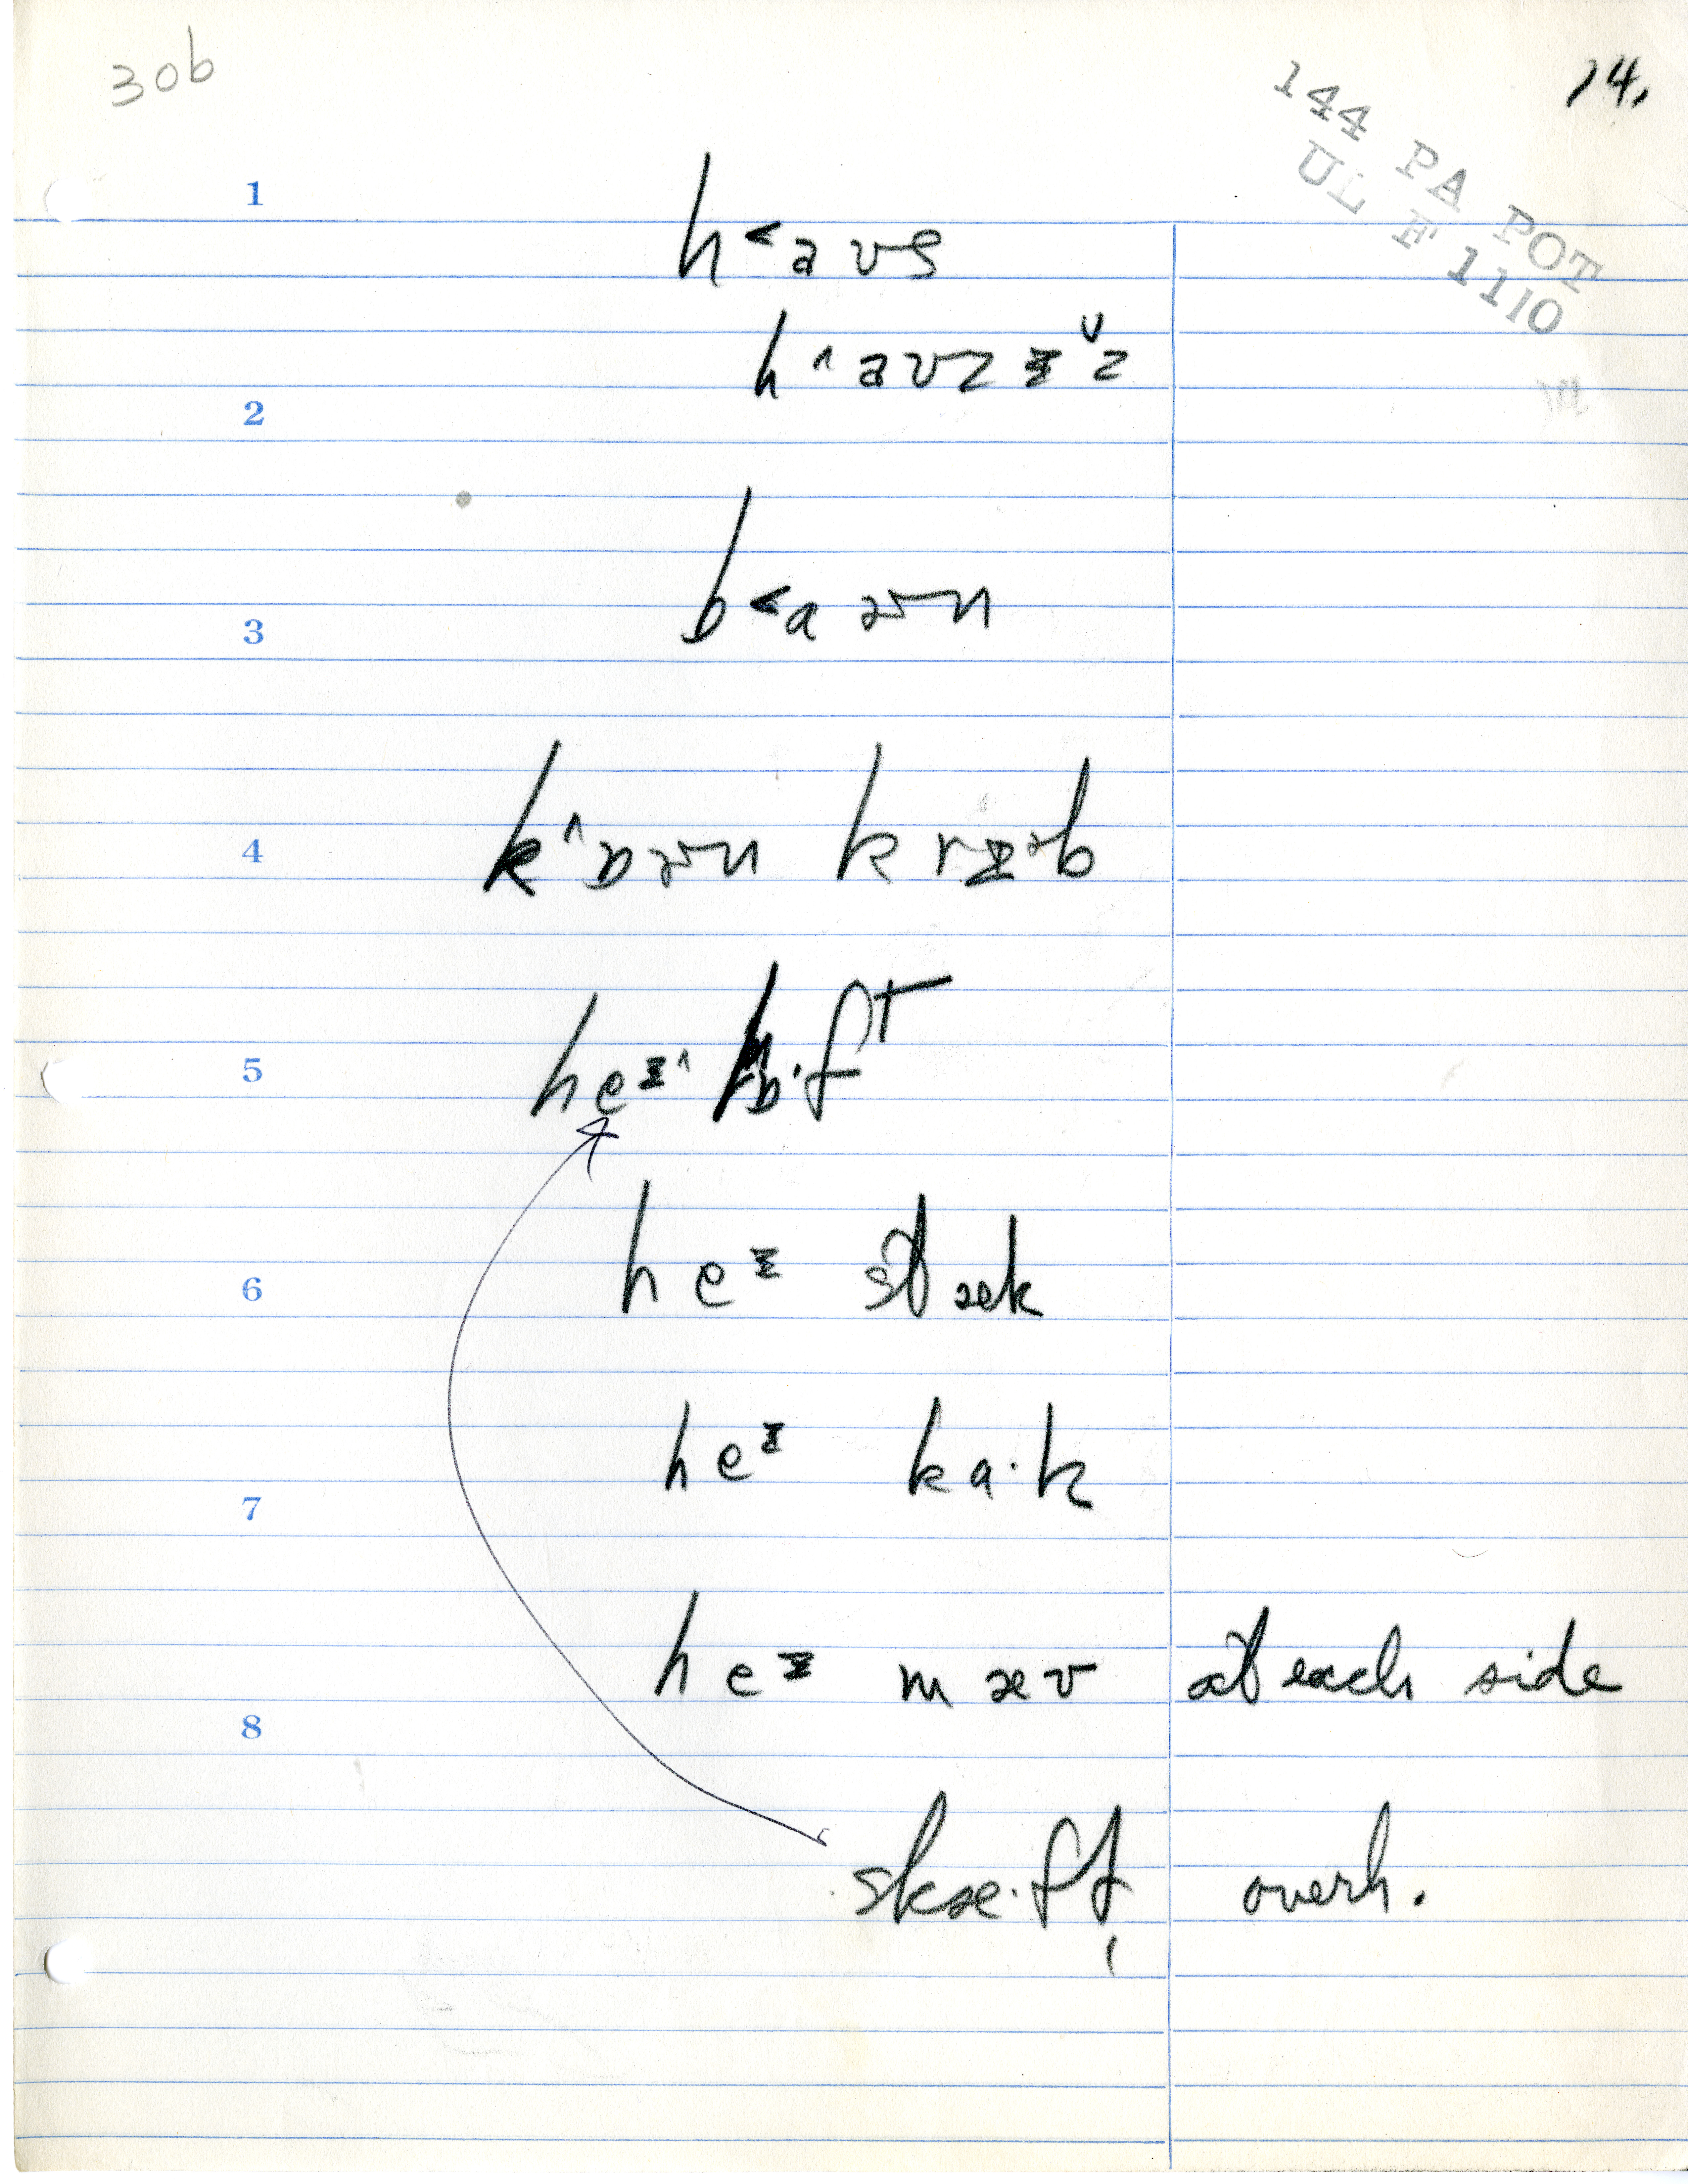 30b
14.
144 PA POT
UL F 1110
1
h˂aʊs
h˄aʊzɪ̵ᵛz
2
b˂aɚn
3
k˄ɒɚn krɪ̵b
4
heɪ̵˄ lɒ·fT
5
heɪ̵ stæk
6
heɪ̵ ka·k
7
heɪ̵ mæʊ at each side
8
skæ·ft overh.